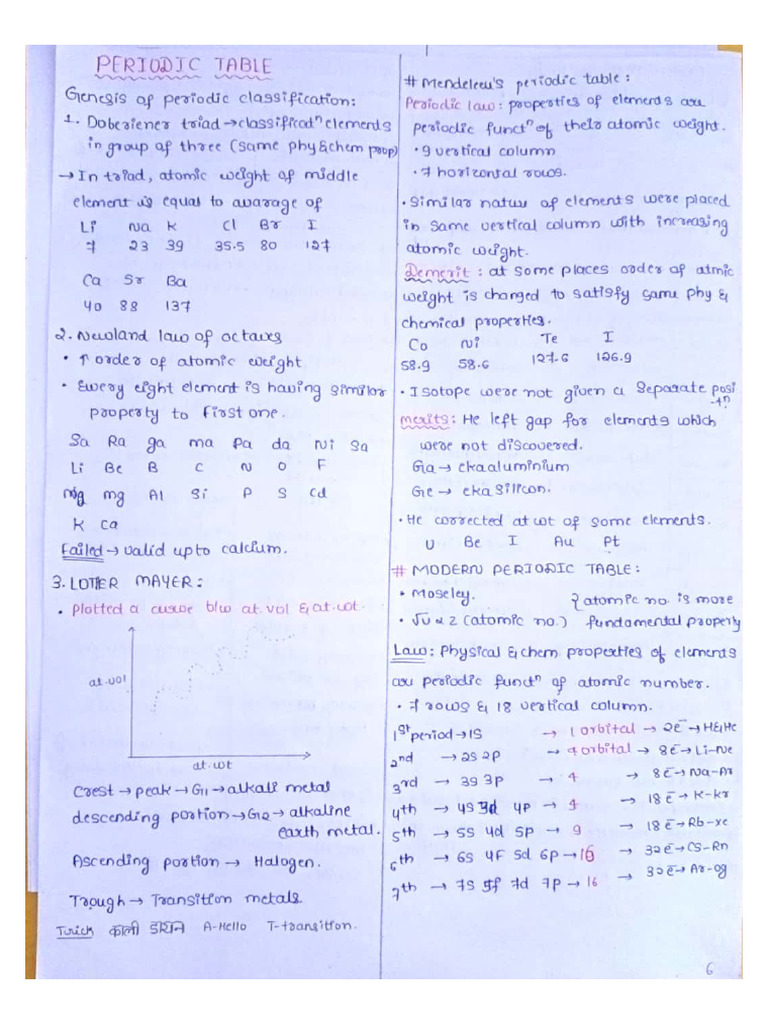 PERIODIC TABLE
Genesis of periodic classification:
1. Doberiener triad → classificatⁿ elements
in group of three (same phy & chem prop)
→ In triad, atomic weight of middle
element is equal to avarage of
Li Na K Cl Br I
7 23 39 35.5 80 127
Ca Sr Ba
40 88 137
2. Newland law of octaves
• ↑ order of atomic weight
• Every eight element is having similar
property to first one.
Sa Ra ga ma Pa da Ni Sa
Li Be B C N O F
mg Al Si P S Cd
K Ca
Failed → valid upto calcium.
3. LOTHER MAYER:
• Plotted a curve b/w at. vol & at. wt.
at. vol
at. wt
Crest → peak → G1 → alkali metal
descending portion → G12 → alkaline
earth metal.
Ascending portion → Halogen.
Trough → Transition metals.
Turick काली डायन A-Hello T-transition.
# Mendeleeu's periodic table:
Periodic law: properties of elements are
periodic functⁿ of their atomic weight.
• 9 vertical column
• 7 horizontal rows.
• Similar natur of elements were placed
in same vertical column with increasing
atomic weight.
Demerit: at some places order of atmic
weight is changed to satisfy same phy &
chemical properties.
Co Ni Te I
58.9 58.6 127.6 126.9
• Isotope were not given a separate posi
→tⁿ
merits: He left gap for elements which
were not discovered.
Ga → ekaaluminium
Ge → ekasilicon.
• He corrected at wt of some elements.
U Be I Au Pt
# MODERN PERIODIC TABLE:
• Moseley. { atomic no. is more
• √υ ∝ Z (atomic no.) fundamental property
Law: Physical & chem properties of elements
are periodic functⁿ of atomic number.
• 7 rows & 18 vertical column.
1st period → 1S → 1 orbital → 2e⁻ → H & He
2nd → 2S 2P → 4 orbital → 8e⁻ → Li-Ne
3rd → 3S 3P → 4 → 8e⁻ → Na-Ar
4th → 4S 3d 4P → 9 → 18e⁻ → K-Kr
5th → 5S 4d 5P → 9 → 18e⁻ → Rb-xe
6th → 6S 4F 5d 6P → 16 → 32e⁻ → CS-Rn
7th → 7S 5f 7d 7P → 16 → 32e⁻ → Ar-og
6